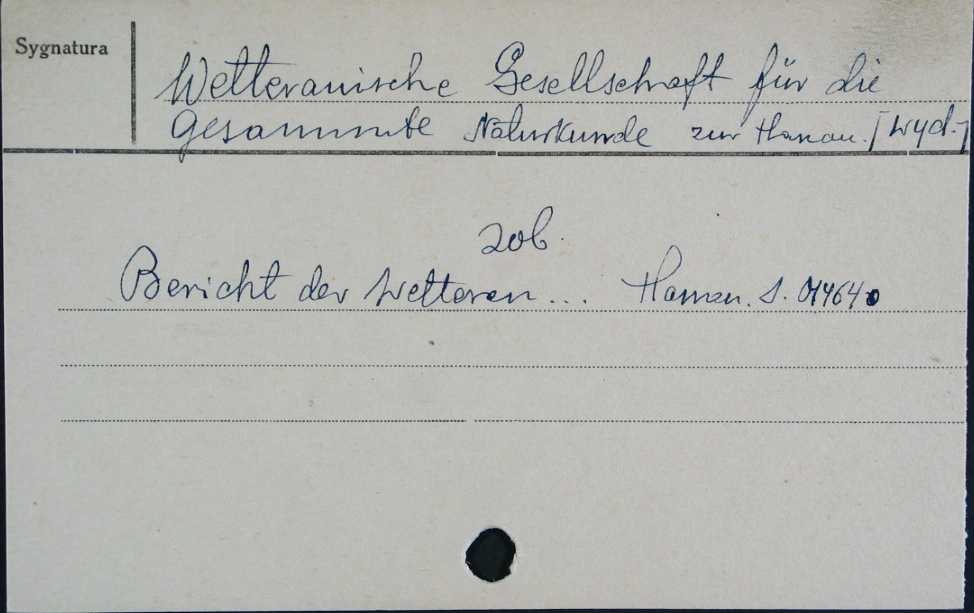 Sygnatura
Wetterauische Gesellschaft für die
Gesammte Naturkunde zur Hanau. [Wyd.]
zob.
Bericht der Wetteren... Hanau. S. 04640